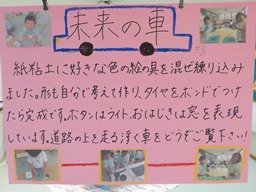 未来の車
紙粘土に好きな色の絵の具を混ぜ練り込み
ました。形も自分で考えて作り、タイヤをボンドでつけ
たら完成です。ボタンはライト、おはじきは窓を表現
しています。道路の上を走る浮く車をどうぞご覧下さい!